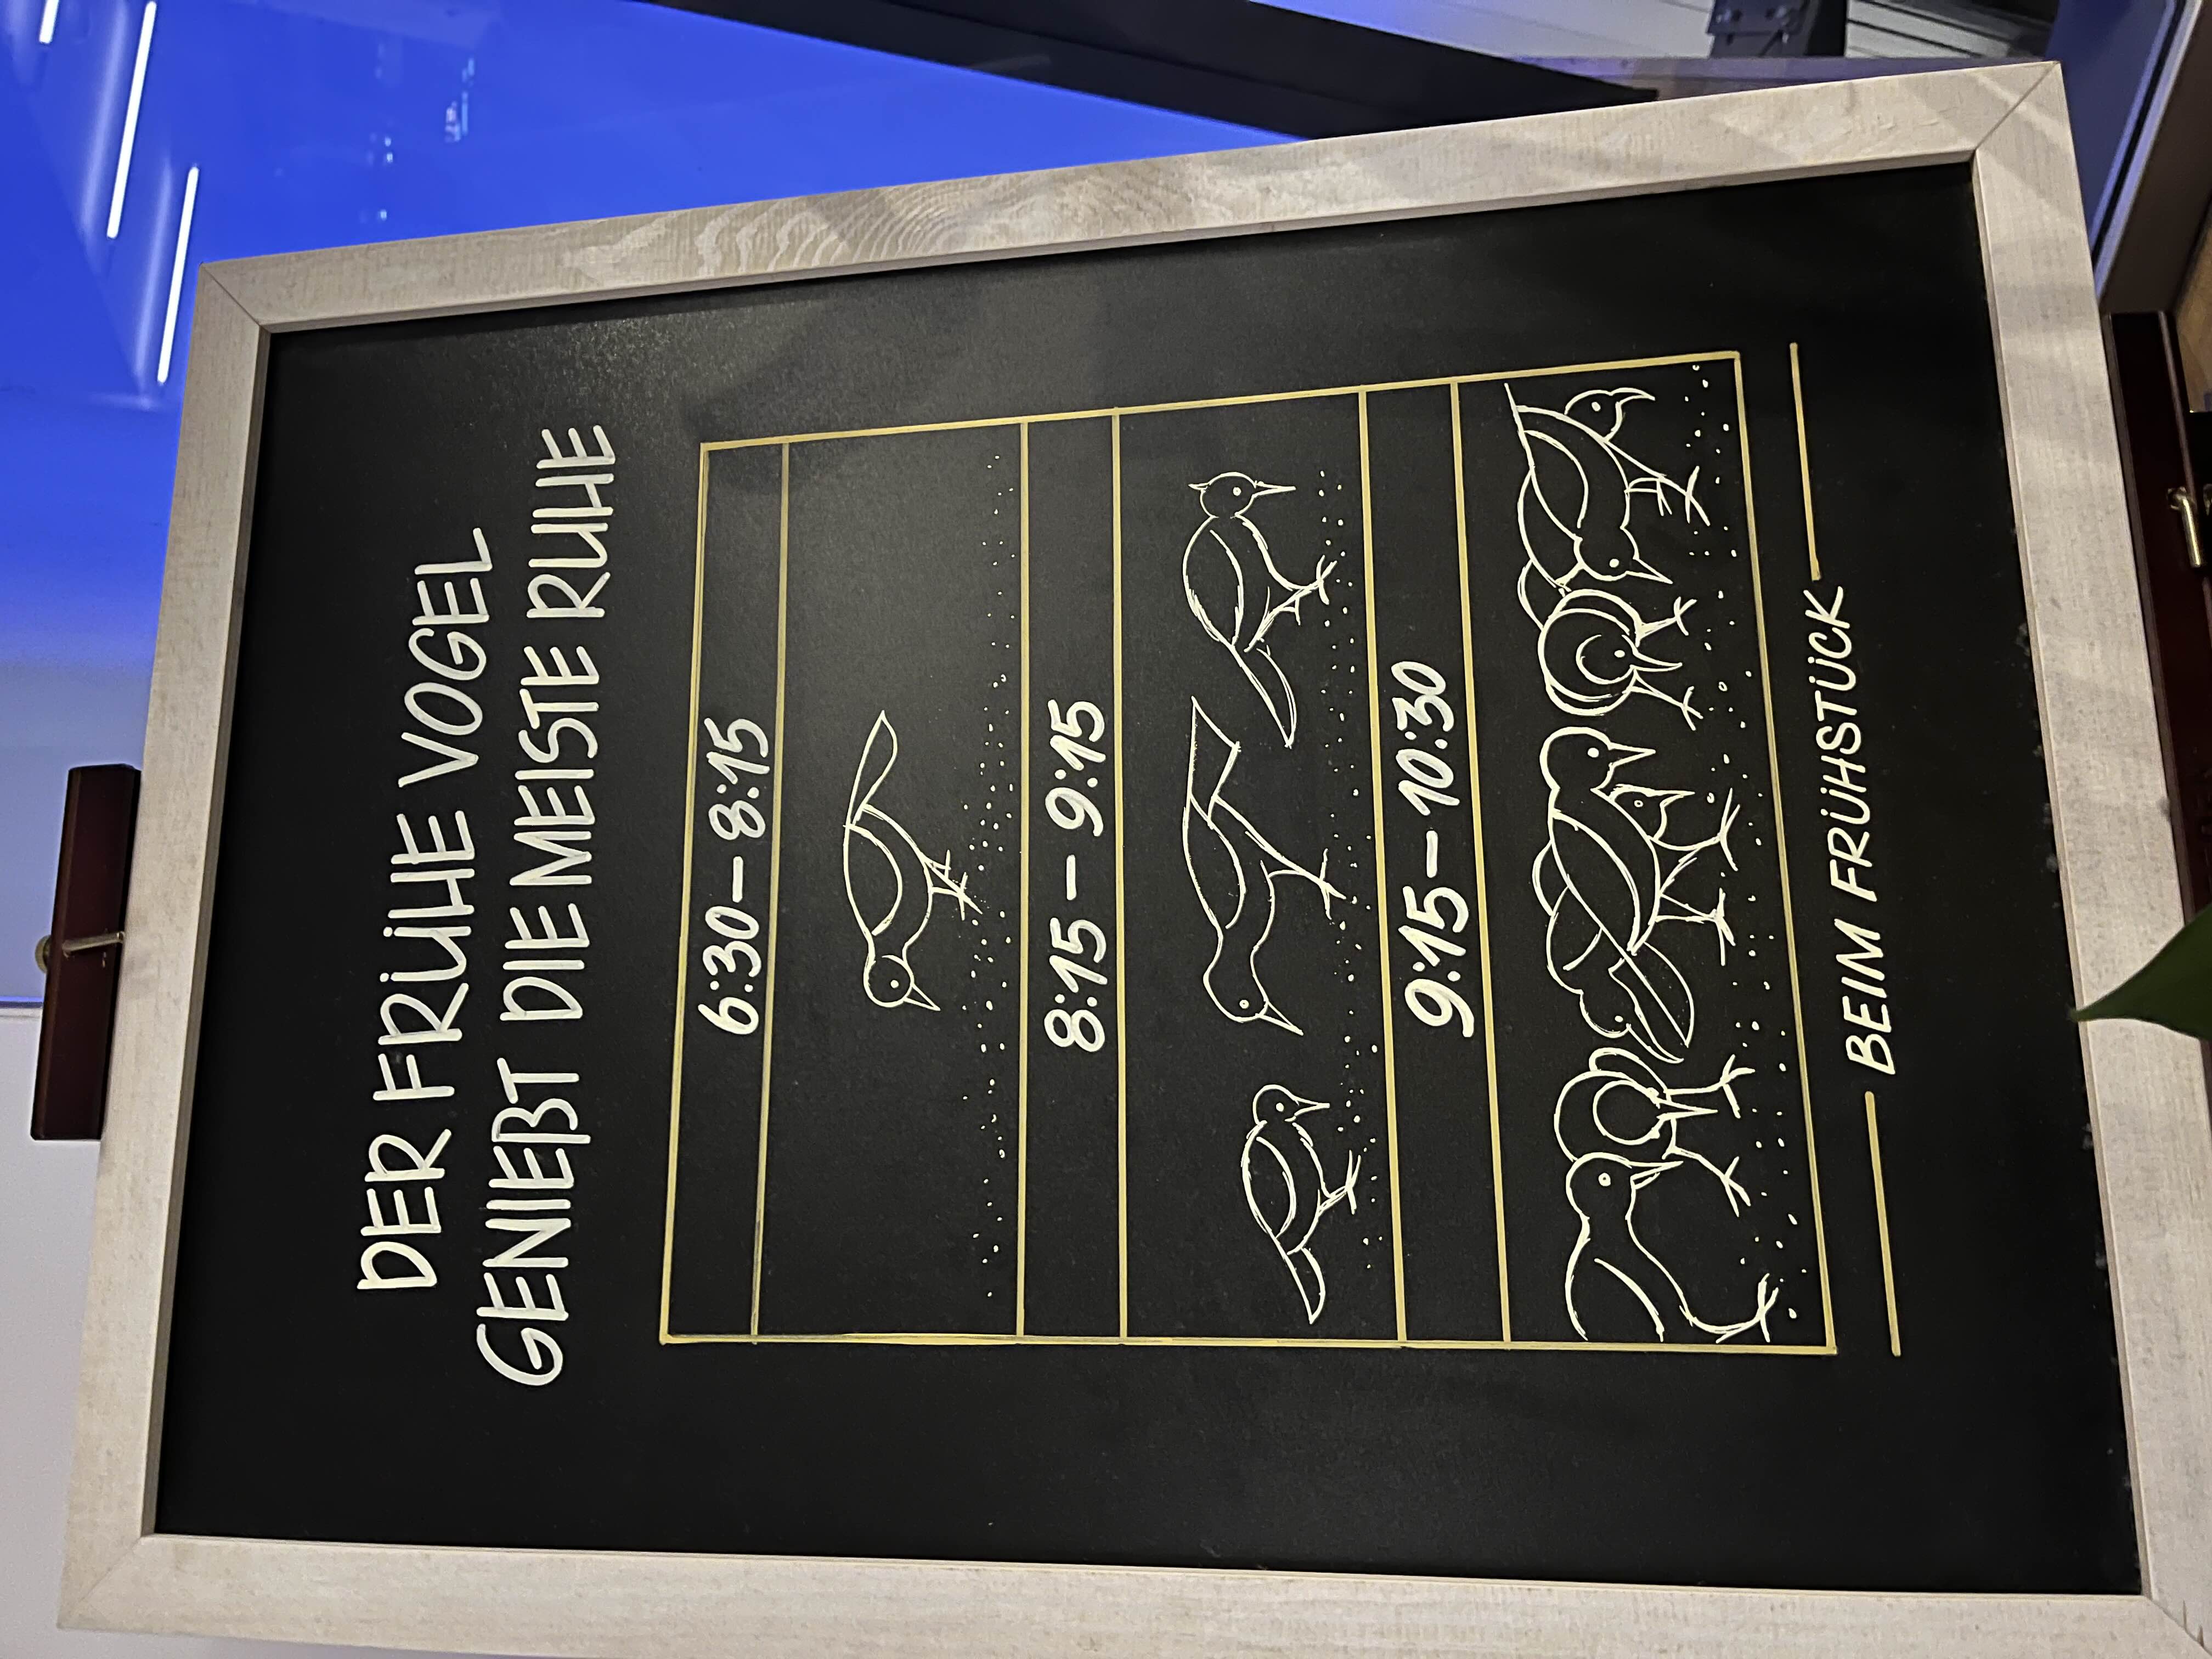 DER FRÜHE VOGEL
GENIEßT DIE MEISTE RUHE
6:30 – 8:15
8:15 – 9:15
9:15 – 10:30
BEIM FRÜHSTÜCK